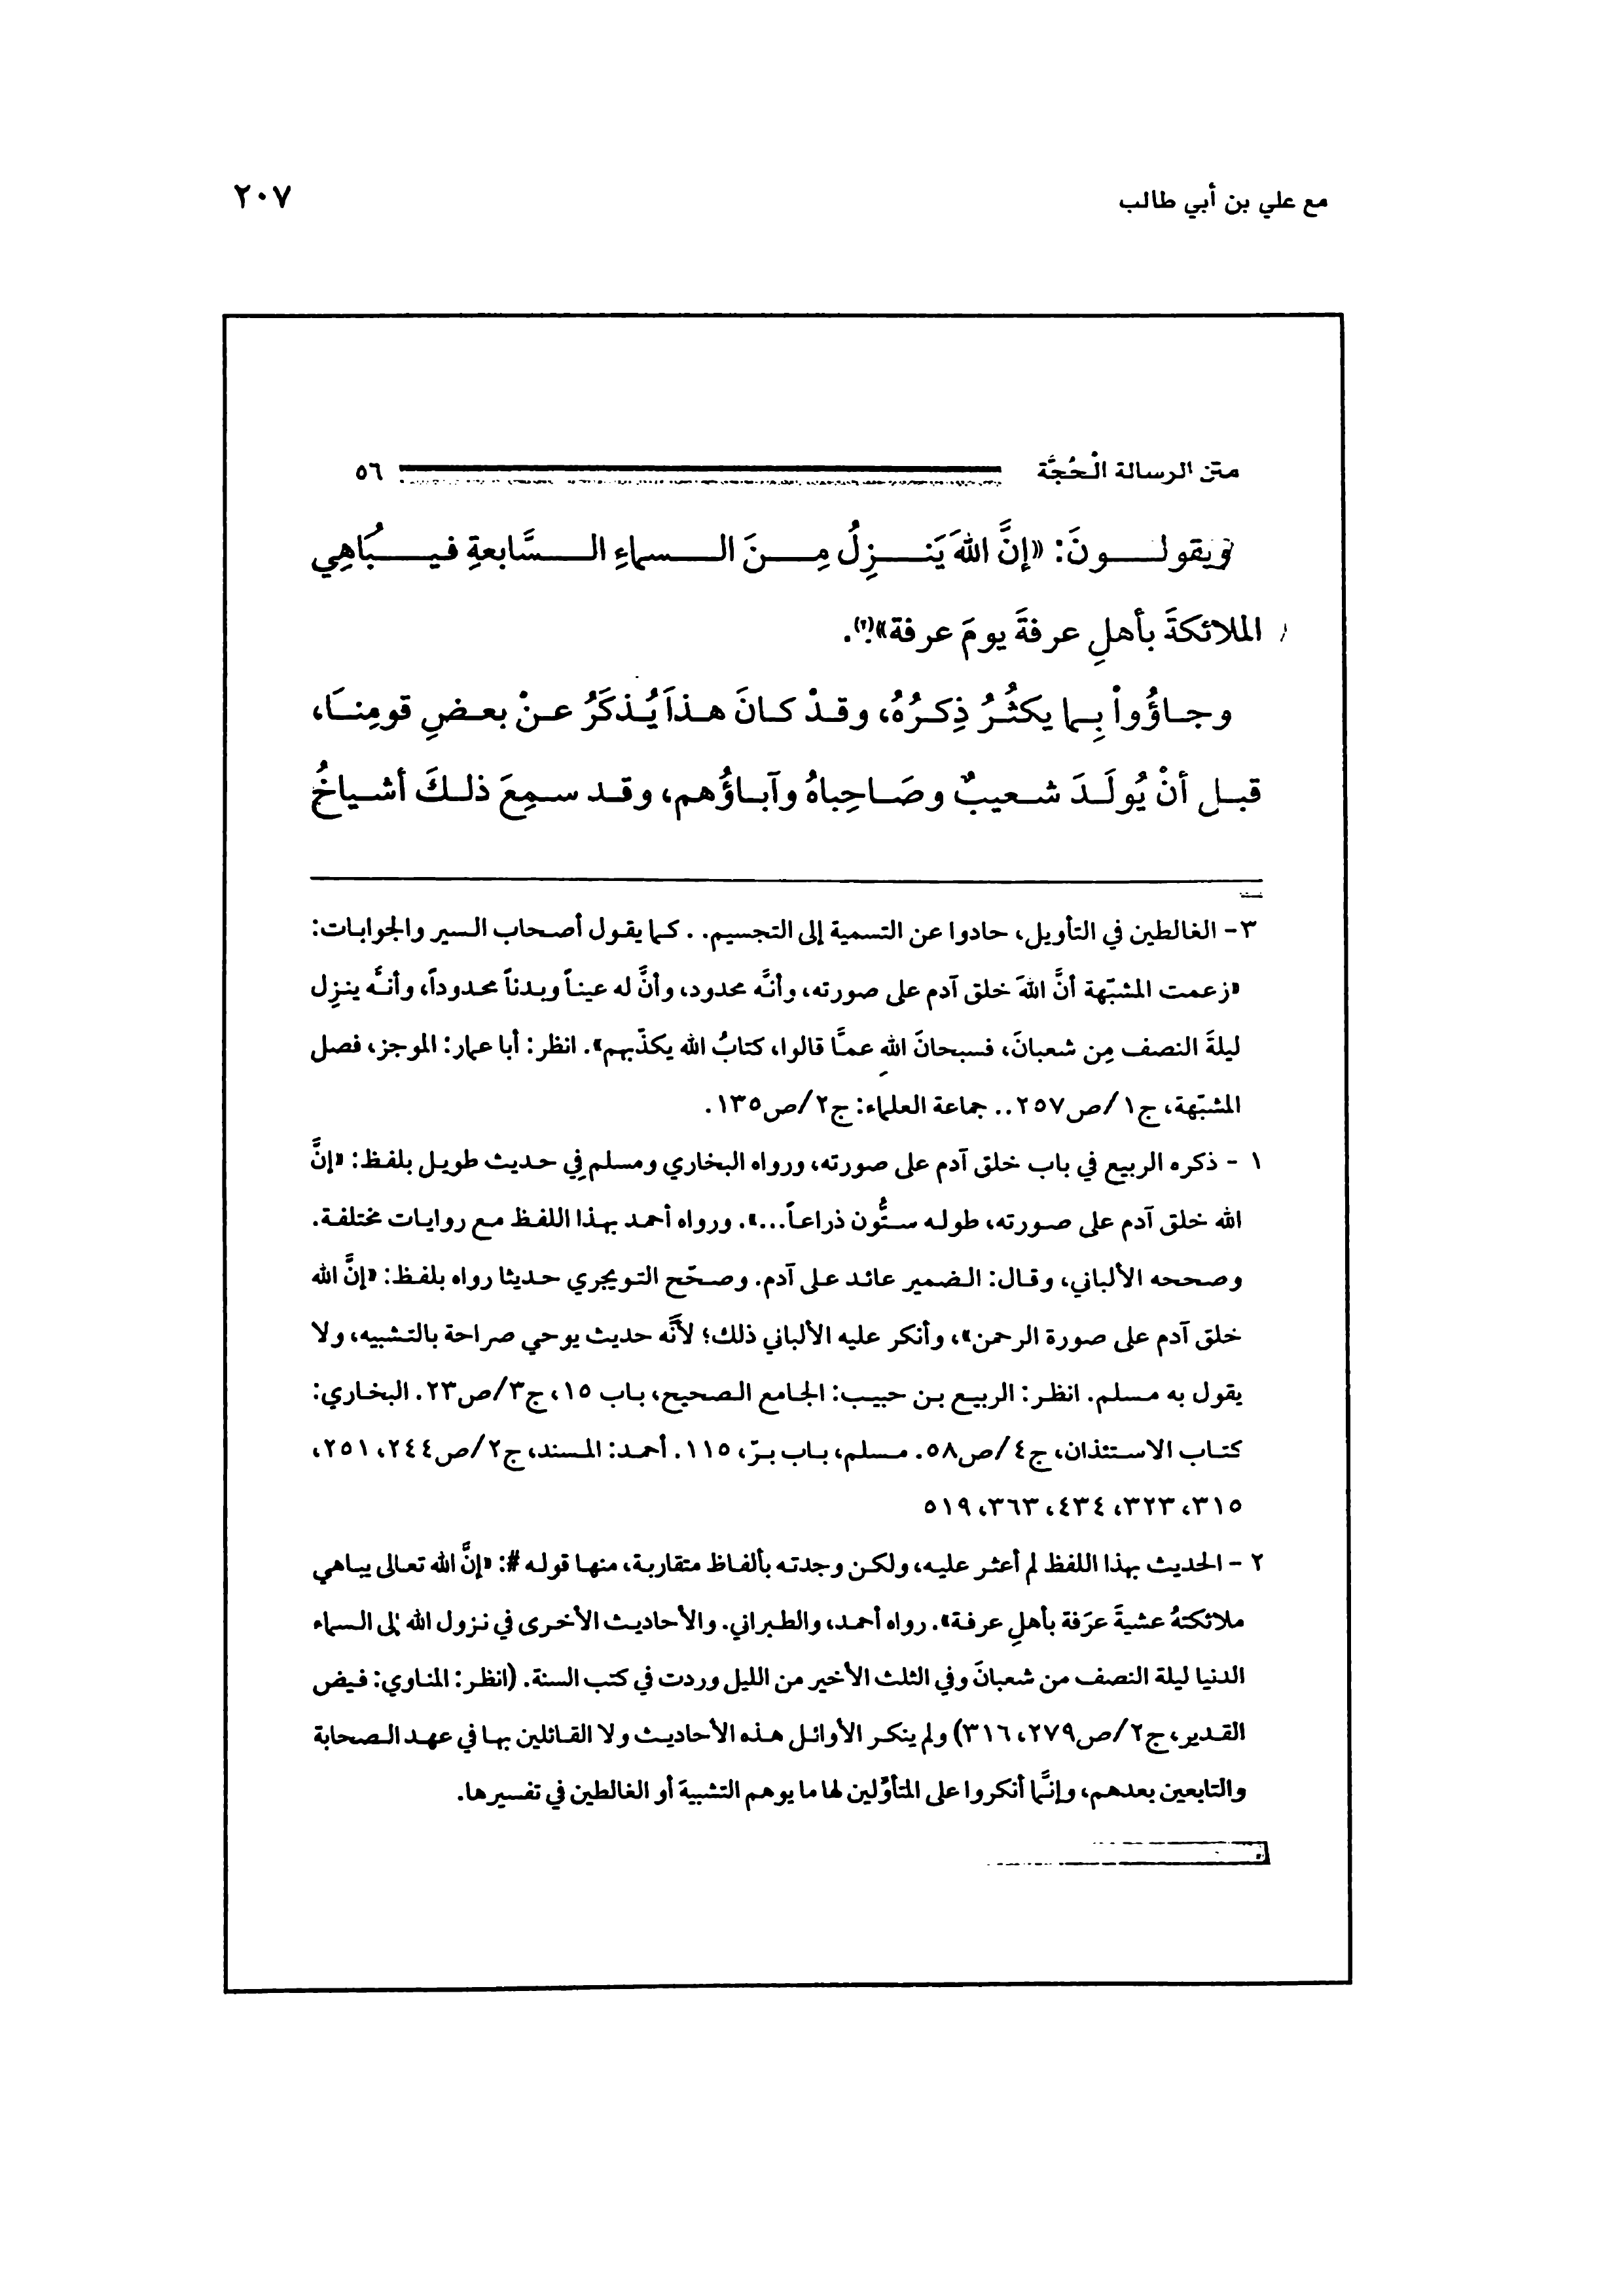 مع علي بن أبي طالب ٢٠٧
متن الرسالة الْحُجَّة ٥٦
ويقولونَ: «إنَّ اللهَ يَنزِلُ مِنَ السماءِ السَّابعةِ فيُبَاهِي
الملائكةَ بأهلِ عرفةَ يومَ عرفة»(٢).
وجاؤُواْ بِما يكثُرُ ذِكرُهُ، وقدْ كانَ هذاَ يُذكَرُ عنْ بعضِ قومِنَا،
قبل أنْ يُولَدَ شعيبٌ وصَاحِباهُ وآباؤُهم، وقد سمِعَ ذلكَ أشياخُ
٣- الغالطين في التأويل، حادوا عن التسمية إلى التجسيم.. كما يقول أصحاب السير والجوابات:
«زعمت المشبّهة أنَّ اللهَ خلق آدم على صورته، وأنَّه محدود، وأنَّ له عيناً وبدناً محدوداً، وأنَّه ينزِل
ليلةَ النصف مِن شعبانَ، فسبحانَ اللهِ عمَّا قالوا، كتابُ الله يكذّبهم». انظر: أبا عمار: الموجز، فصل
المشبّهة، ج١/ص٢٥٧.. جماعة العلماء: ج٢/ص١٣٥.
١ - ذكره الربيع في باب خلق آدم على صورته، ورواه البخاري ومسلم فِي حديث طويل بلفظ: «إنَّ
الله خلق آدم على صورته، طوله ستُّون ذراعاً...». ورواه أحمد بهذا اللفظ مع روايات مختلفة.
وصححه الألباني، وقال: الضمير عائد على آدم. وصحّح التويجري حديثا رواه بلفظ: «إنَّ الله
خلق آدم على صورة الرحمن»، وأنكر عليه الألباني ذلك؛ لأنَّه حديث يوحي صراحة بالتشبيه، ولا
يقول به مسلم. انظر: الربيع بن حبيب: الجامع الصحيح، باب ١٥، ج٣/ص٢٣. البخاري:
كتاب الاستئذان، ج٤/ص٥٨. مسلم، باب برّ، ١١٥. أحمد: المسند، ج٢/ص٢٤٤، ٢٥١،
٣١٥، ٣٢٣، ٤٣٤، ٣٦٣، ٥١٩
٢ - الحديث بهذا اللفظ لم أعثر عليه، ولكن وجدته بألفاظ متقاربة، منها قوله #: «إنَّ الله تعالى يباهي
ملائكتهُ عشيةَ عرَفة بأهلِ عرفة». رواه أحمد، والطبراني. والأحاديث الأخرى في نزول الله إلى السماء
الدنيا ليلة النصف من شعبانَ وفي الثلث الأخير من الليل وردت في كتب السنة. (انظر: المناوي: فيض
القدير، ج٢/ص٢٧٩، ٣١٦) ولم ينكر الأوائل هذه الأحاديث ولا القائلين بها في عهد الصحابة
والتابعين بعدهم، وإنَّما أنكروا على المتأوّلين لها ما يوهم التشبيهَ أو الغالطين في تفسيرها.